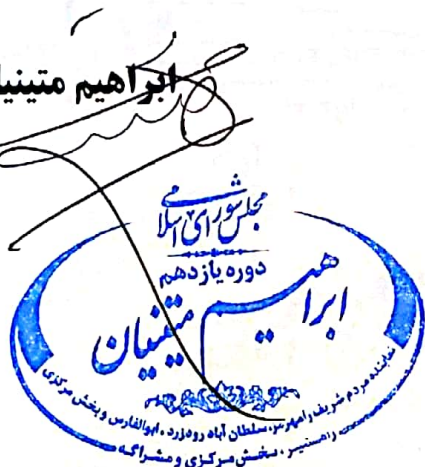 ابراهیم متینیا
مجلس شورای اسلامی
دوره یازدهم
ابراهیم متینیان
نماینده مردم شریف رامهرمز، سلطان آباد، رودزرد، ابوالفارس و بخش مرکزی
رامشیر، بخش مرکزی و مشراگه